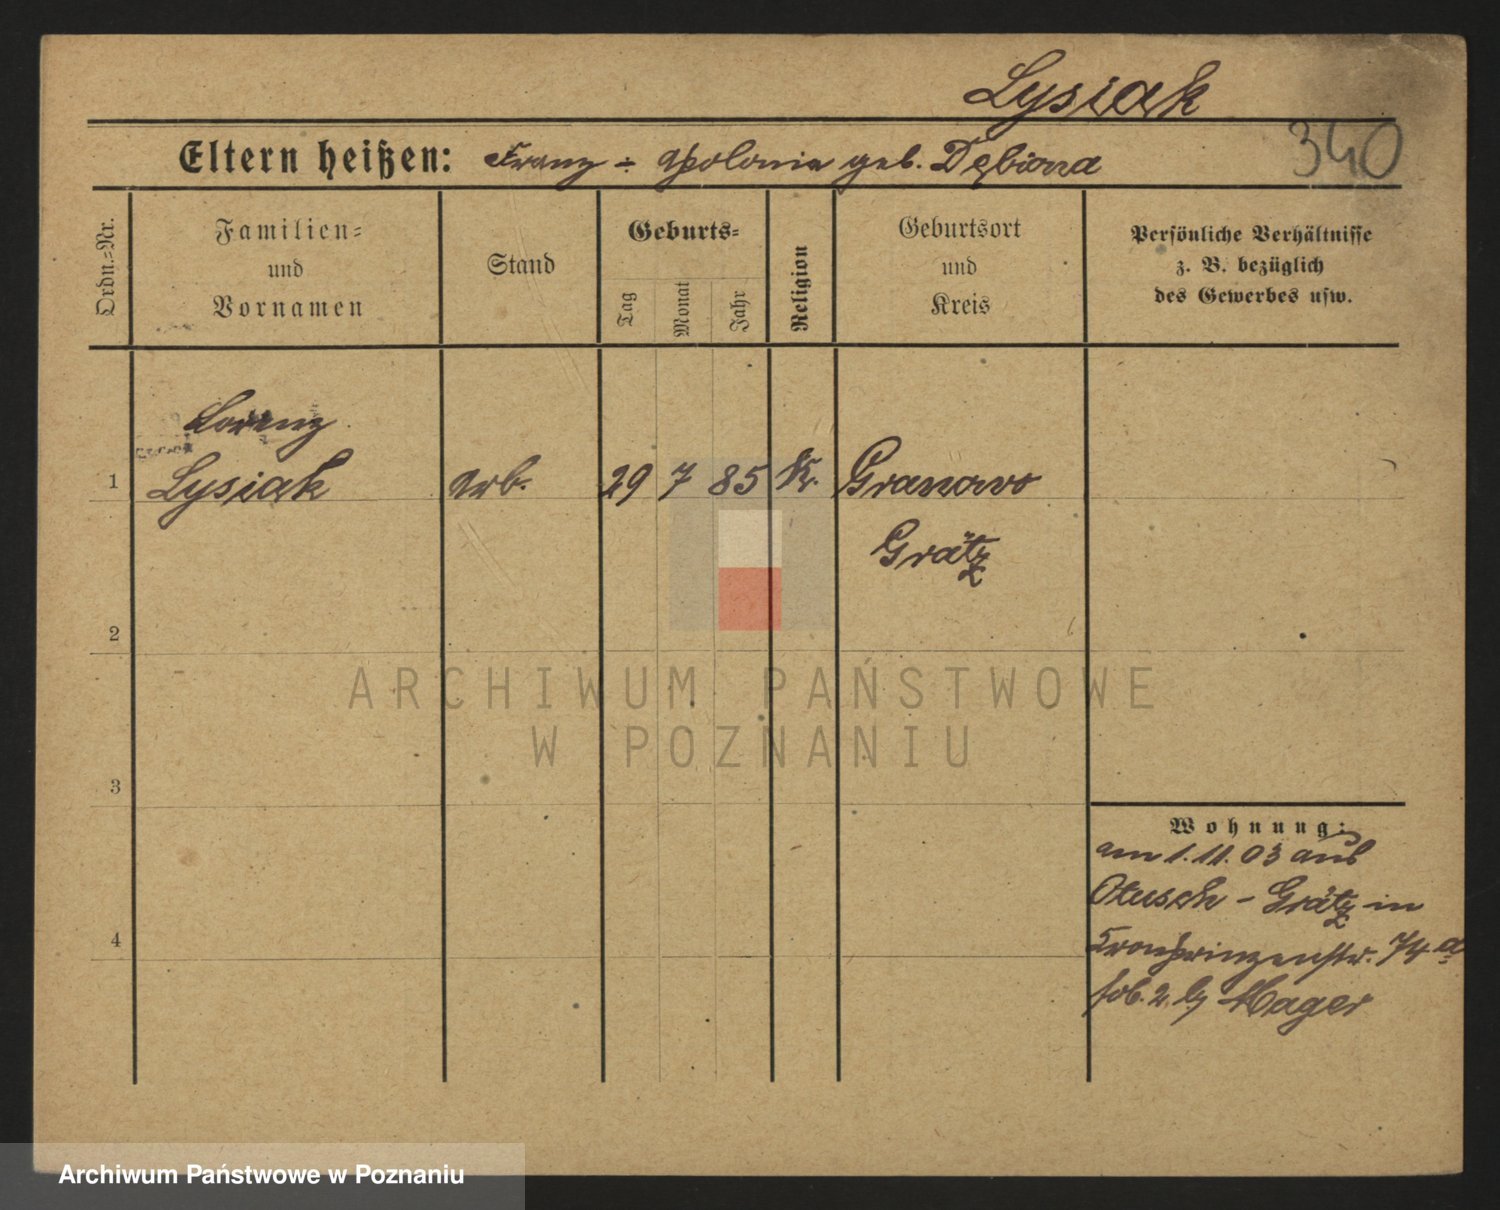 Lysiak
340
Eltern heißen: Franz ÷ Apolonia geb. Dębiona
Ordn.=Nr.
Familien= und Vornamen
Stand
Geburts=
Tag
Monat
Jahr
Religion
Geburtsort und Kreis
Persönliche Verhältnisse
z. B. bezüglich
des Gewerbes usw.
Lorenz
1 Lysiak arb. 29 7 85 K. Granowo
Grätz
2
3
4
Wohnung:
am 1.11.03 aus
Otusch - Grätz in
Kronprinzenstr. 74 a
Mager
ARCHIWUM PAŃSTWOWE
W POZNANIU
Archiwum Państwowe w Poznaniu